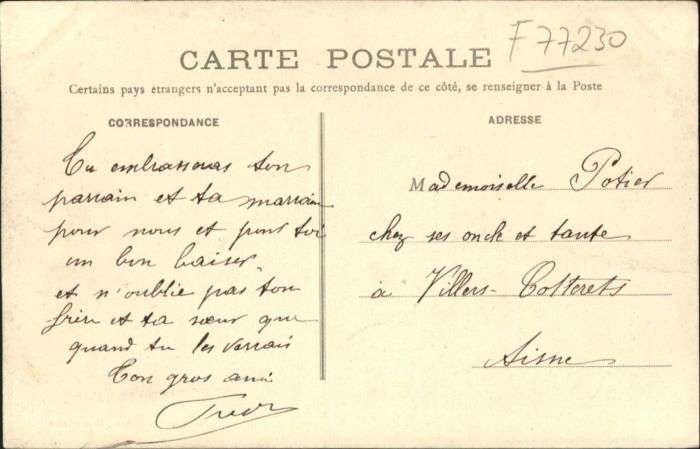 F 77230
CARTE POSTALE
Certains pays étrangers n'acceptent pas la correspondance de ce côté, se renseigner à la Poste
CORRESPONDANCE
Tu embrasseras ton
parrain et ta marraine
pour nous et pour toi
un bon baiser
et n'oublie pas ton
frère et ta sœur que
quand tu les verrais
Ton gros ami
ADRESSE
Mademoiselle Potier
chez ses oncle et tante
à Villers-Cotterets
Aisne